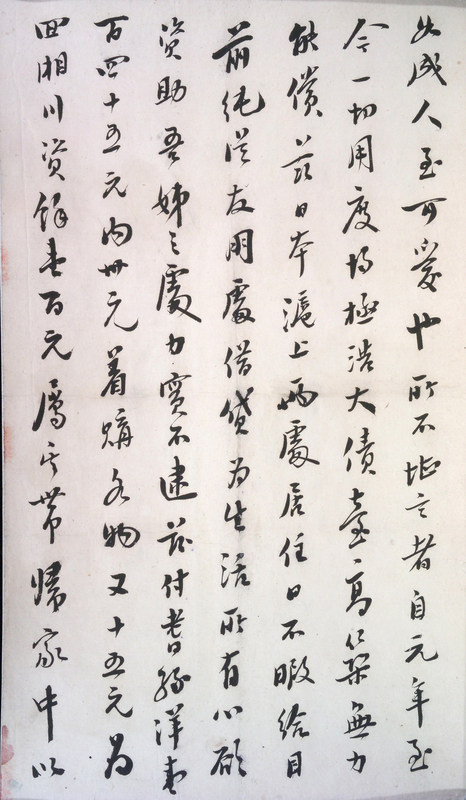 如成人至可愛也所不堪言者自元年至
今一切用度均極浩大債臺高築無力
能償茲日本滬上兩處居住日不暇給目
前純從友朋處借貸為生活所有心願
資助吾姊之處力實不逮茲付耆洋壹
百四十五元內卅元着購各物又十五元為
回湘川資餘壹百元屬其帶歸家中以